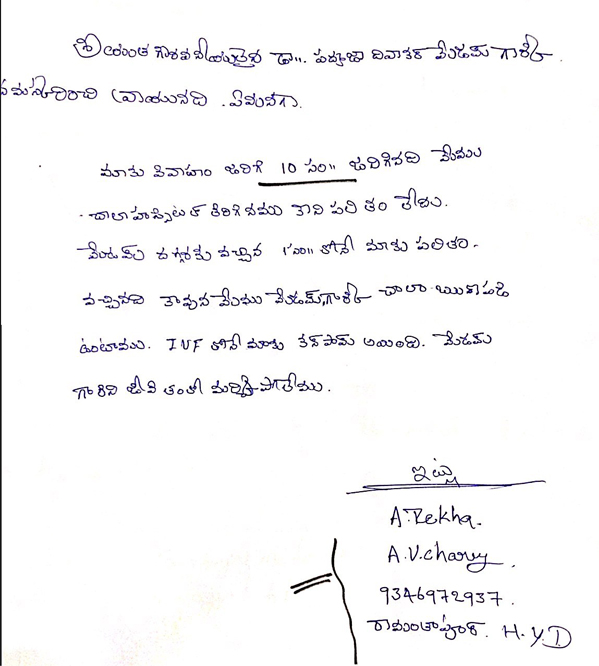 శ్రీయుత గౌరవనీయులైన డా,,. పద్మజా దివాకర్ మేడమ్ గార్కి.
నమస్కరించి వ్రాయునది. ఏమనగా.
మాకు వివాహం జరిగి 10 సం,, జరిగినది మేము
చాలా హస్పిటల్ తిరిగినము కాని పలితం లేదు.
మేడమ్ దగ్గరకు వచ్చిన 1సం,, లోనే మాకు పలితం.
వచ్చినది కావున మేము మేడమ్ గార్కి చాలా ఋణపడి
ఉంటాము. IUF లోనే మాకు కన్ఫామ్ అయింది. మేడమ్
గారిని జీవితంలో మర్చిపోలేము.
ఇట్లు
A. Rekha.
A.V.chary.
9346972937.
రామంతాపూర్. H.Y.D